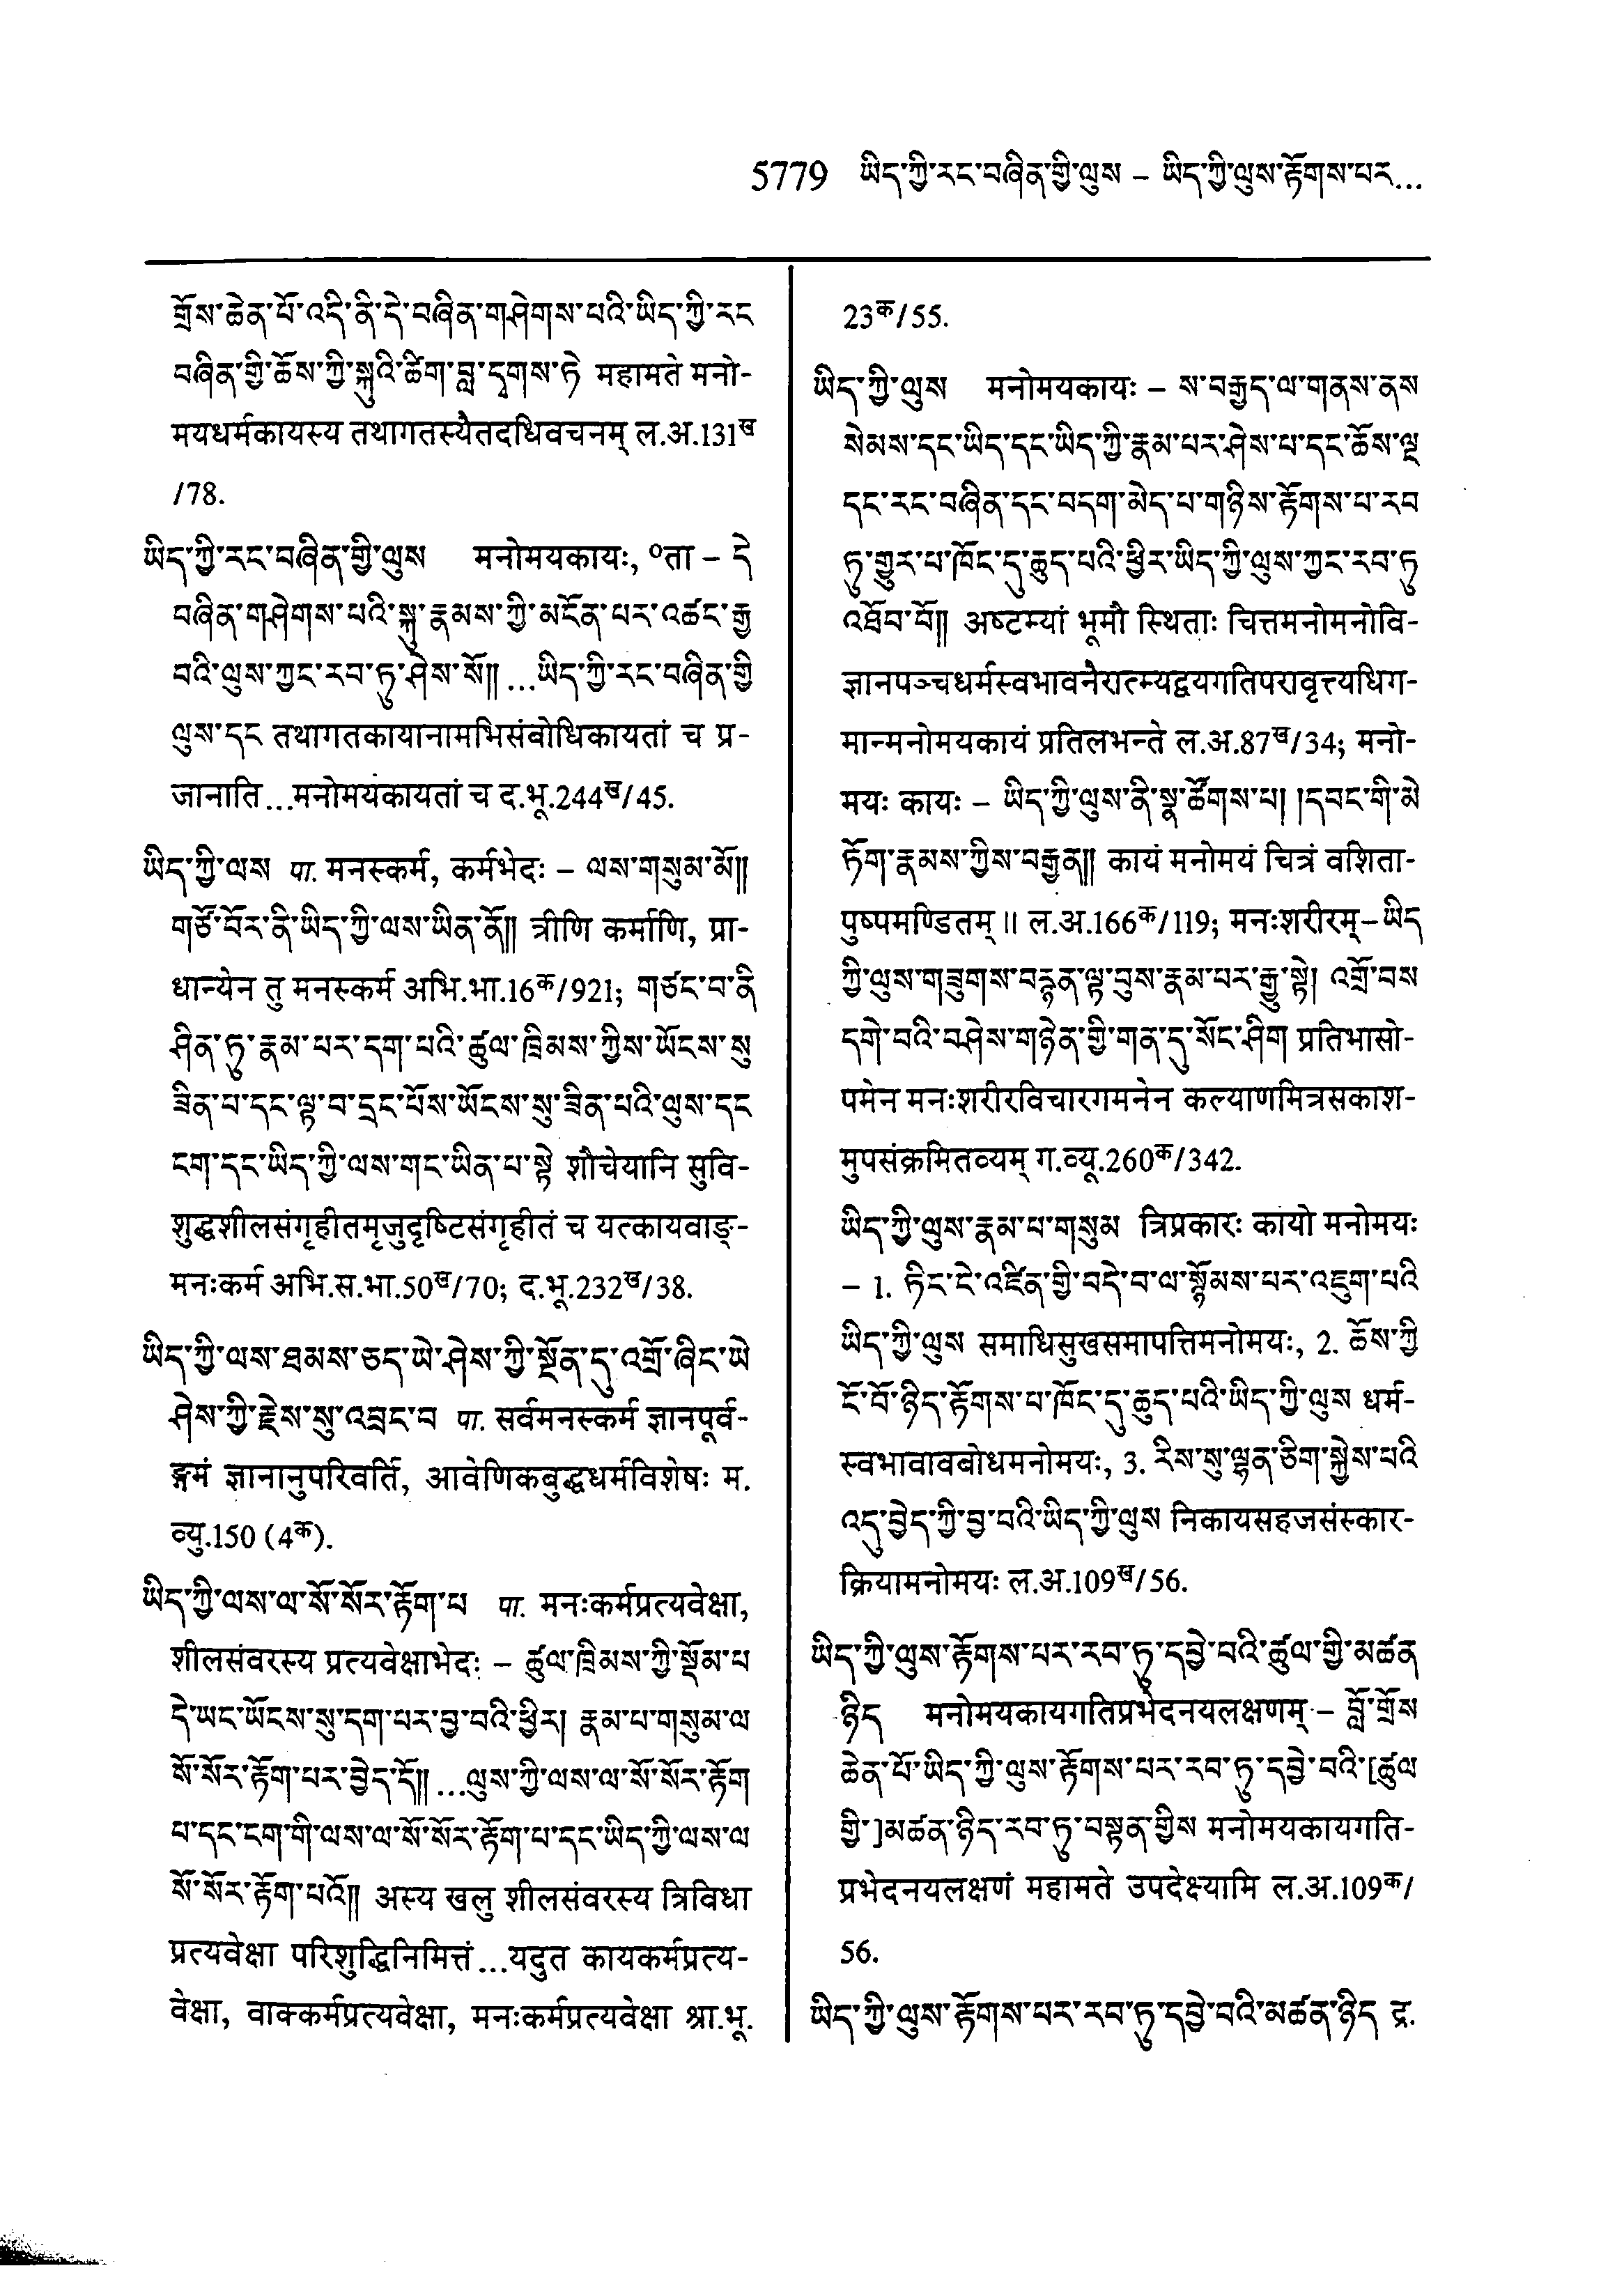 5779 ཡིད་ཀྱི་རང་བཞིན་གྱི་ལུས – ཡིད་ཀྱི་ལུས་རྟོགས་པར...
གྲོས་ཆེན་པོ་འདི་ནི་དེ་བཞིན་གཤེགས་པའི་ཡིད་ཀྱི་རང
བཞིན་གྱི་ཆོས་ཀྱི་སྐུའི་ཚིག་བླ་དྭགས་ཏེ महामते मनो-
मयधर्मकायस्य तथागतस्यैतदधिवचनम् ल.अ.131ख
/78.
ཡིད་ཀྱི་རང་བཞིན་གྱི་ལུས मनोमयकायः, ०ता – དེ
བཞིན་གཤེགས་པའི་སྐུ་རྣམས་ཀྱི་མངོན་པར་འཚང་རྒྱ
བའི་ལུས་ཀྱང་རབ་ཏུ་ཤེས་སོ༎ ...ཡིད་ཀྱི་རང་བཞིན་གྱི
ལུས་དང तथागतकायानामभिसंबोधिकायतां च प्र-
जानाति...मनोमयकायतां च द.भू.244ख/45.
ཡིད་ཀྱི་ལས पा. मनस्कर्म, कर्मभेदः – ལས་གསུམ་མོ༎
གཙོ་བོར་ནི་ཡིད་ཀྱི་ལས་ཡིན་ནོ༎ त्रीणि कर्माणि, प्रा-
धान्येन तु मनस्कर्म अभि.भा.16क/921; གཙང་བ་ནི
ཤིན་ཏུ་རྣམ་པར་དག་པའི་ཚུལ་ཁྲིམས་ཀྱིས་ཡོངས་སུ
ཟིན་པ་དང་ལྟ་བ་དྲང་པོས་ཡོངས་སུ་ཟིན་པའི་ལུས་དང
ངག་དང་ཡིད་ཀྱི་ལས་གང་ཡིན་པ་སྟེ शौचेयानि सुवि-
शुद्धशीलसंगृहीतमृजुदृष्टिसंगृहीतं च यत्कायवाङ्-
मनःकर्म अभि.स.भा.50ख/70; द.भू.232ख/38.
ཡིད་ཀྱི་ལས་ཐམས་ཅད་ཡེ་ཤེས་ཀྱི་སྔོན་དུ་འགྲོ་ཞིང་ཡེ
ཤེས་ཀྱི་རྗེས་སུ་འབྲང་བ पा. सर्वमनस्कर्म ज्ञानपूर्व-
ङ्गमं ज्ञानानुपरिवर्ति, आवेणिकबुद्धधर्मविशेषः म.
व्यु.150 (4क).
ཡིད་ཀྱི་ལས་ལ་སོ་སོར་རྟོག་པ पा. मनःकर्मप्रत्यवेक्षा,
शीलसंवरस्य प्रत्यवेक्षाभेदः – ཚུལ་ཁྲིམས་ཀྱི་སྡོམ་པ
དེ་ཡང་ཡོངས་སུ་དག་པར་བྱ་བའི་ཕྱིར། རྣམ་པ་གསུམ་ལ
སོ་སོར་རྟོག་པར་བྱེད་དོ༎ ...ལུས་ཀྱི་ལས་ལ་སོ་སོར་རྟོག
པ་དང་ངག་གི་ལས་ལ་སོ་སོར་རྟོག་པ་དང་ཡིད་ཀྱི་ལས་ལ
སོ་སོར་རྟོག་པའོ༎ अस्य खलु शीलसंवरस्य त्रिविधा
प्रत्यवेक्षा परिशुद्धिनिमित्तं...यदुत कायकर्मप्रत्य-
वेक्षा, वाक्कर्मप्रत्यवेक्षा, मनःकर्मप्रत्यवेक्षा श्रा.भू.
23क/55.
ཡིད་ཀྱི་ལུས मनोमयकायः – ས་བརྒྱད་ལ་གནས་ནས
སེམས་དང་ཡིད་དང་ཡིད་ཀྱི་རྣམ་པར་ཤེས་པ་དང་ཆོས་ལྔ
དང་རང་བཞིན་དང་བདག་མེད་པ་གཉིས་རྟོགས་པ་རབ
ཏུ་གྱུར་པ་ཁོང་དུ་ཆུད་པའི་ཕྱིར་ཡིད་ཀྱི་ལུས་ཀྱང་རབ་ཏུ
འཐོབ་བོ༎ अष्टम्यां भूमौ स्थिताः चित्तमनोमनोवि-
ज्ञानपञ्चधर्मस्वभावनैरात्म्यद्वयगतिपरावृत्त्यधिग-
मान्मनोमयकायं प्रतिलभन्ते ल.अ.87ख/34; मनो-
मयः कायः – ཡིད་ཀྱི་ལུས་ནི་སྣ་ཚོགས་པ། །དབང་གི་མེ
ཏོག་རྣམས་ཀྱིས་བརྒྱན༎ कायं मनोमयं चित्रं वशिता-
पुष्पमण्डितम् ॥ ल.अ.166क/119; मनःशरीरम् – ཡིད
ཀྱི་ལུས་གཟུགས་བརྙན་ལྟ་བུས་རྣམ་པར་རྒྱུ་སྟེ། འགྲོ་བས
དགེ་བའི་བཤེས་གཉེན་གྱི་གན་དུ་སོང་ཤིག प्रतिभासो-
पमेन मनःशरीरविचारगमनेन कल्याणमित्रसकाश-
मुपसंक्रमितव्यम् ग.व्यू.260क/342.
ཡིད་ཀྱི་ལུས་རྣམ་པ་གསུམ त्रिप्रकारः कायो मनोमयः
– 1. ཏིང་ངེ་འཛིན་གྱི་བདེ་བ་ལ་སྙོམས་པར་འཇུག་པའི
ཡིད་ཀྱི་ལུས समाधिसुखसमापत्तिमनोमयः, 2. ཆོས་ཀྱི
ངོ་བོ་ཉིད་རྟོགས་པ་ཁོང་དུ་ཆུད་པའི་ཡིད་ཀྱི་ལུས धर्म-
स्वभावावबोधमनोमयः, 3. རིས་སུ་ལྷན་ཅིག་སྐྱེས་པའི
འདུ་བྱེད་ཀྱི་བྱ་བའི་ཡིད་ཀྱི་ལུས निकायसहजसंस्कार-
क्रियामनोमयः ल.अ.109ख/56.
ཡིད་ཀྱི་ལུས་རྟོགས་པར་རབ་ཏུ་དབྱེ་བའི་ཚུལ་གྱི་མཚན
ཉིད मनोमयकायगतिप्रभेदनयलक्षणम् – བློ་གྲོས
ཆེན་པོ་ཡིད་ཀྱི་ལུས་རྟོགས་པར་རབ་ཏུ་དབྱེ་བའི་[ཚུལ
གྱི་]མཚན་ཉིད་རབ་ཏུ་བསྟན་གྱིས मनोमयकायगति-
प्रभेदनयलक्षणं महामते उपदेक्ष्यामि ल.अ.109क/
56.
ཡིད་ཀྱི་ལུས་རྟོགས་པར་རབ་ཏུ་དབྱེ་བའི་མཚན་ཉིད द्र.